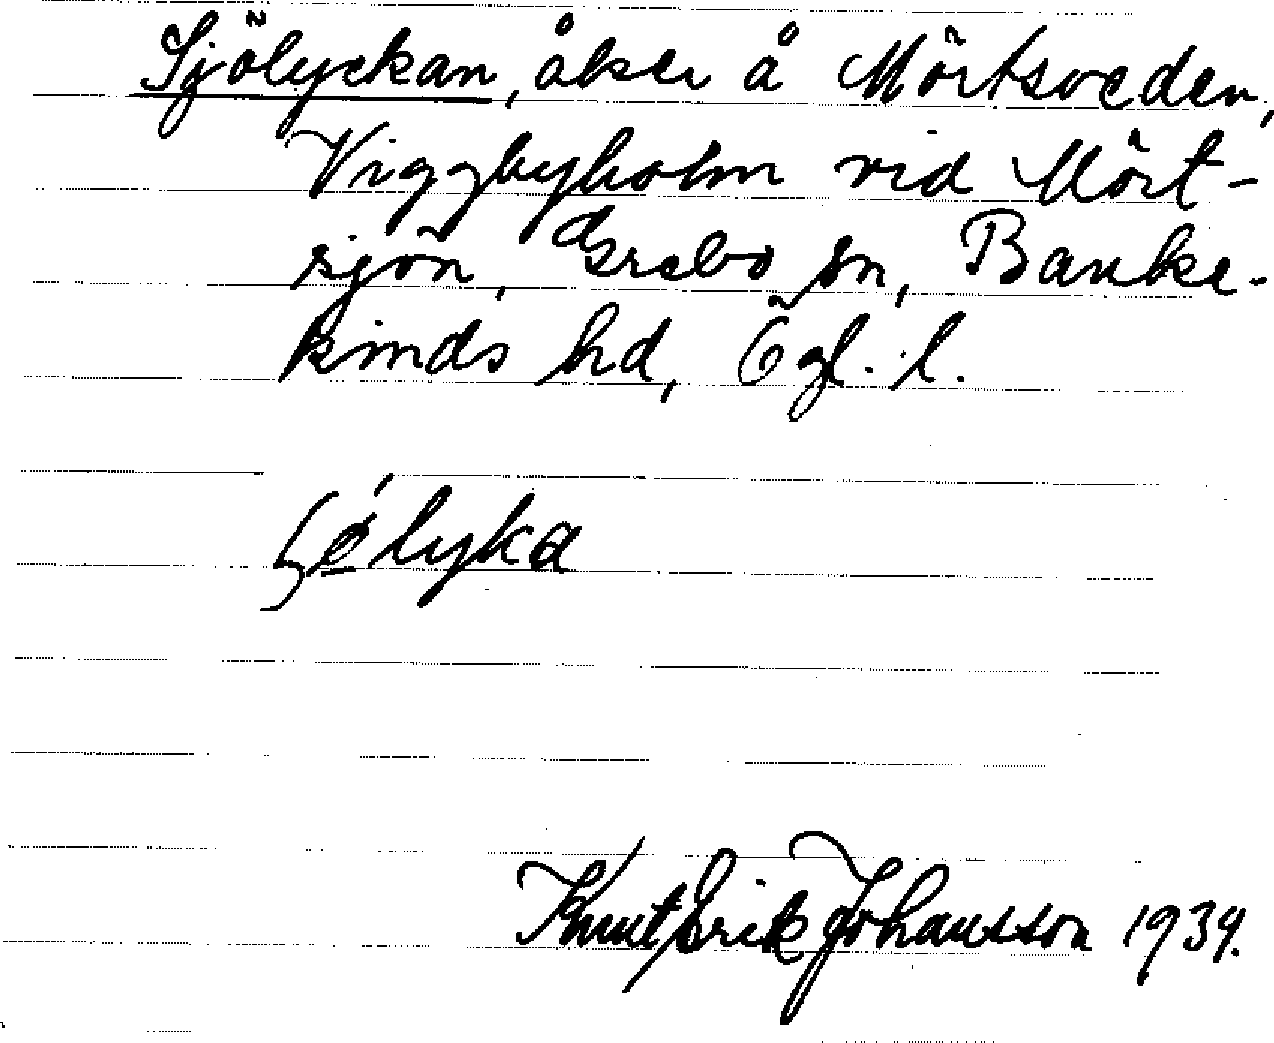 Sjölyckan, åker å Mörtsveden,
Viggbyholm vid Mört-
sjön, Grebo sn, Banke-
kinds hd, Ögl. l.
ʃǿ̱lyka
Knut Erik Johansson 1934.